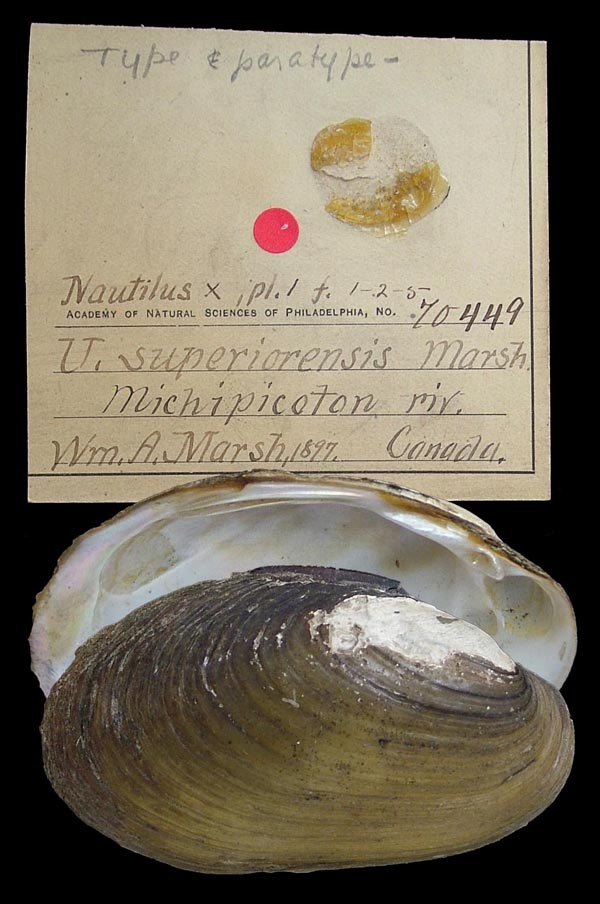 Type & paratype-
Nautilus x, pl. 1 f. 1-2-5
ACADEMY OF NATURAL SCIENCES OF PHILADELPHIA, NO. 70449
U. superiorensis Marsh.
Michipicoton riv.
Wm. A. Marsh, 1897. Canada.